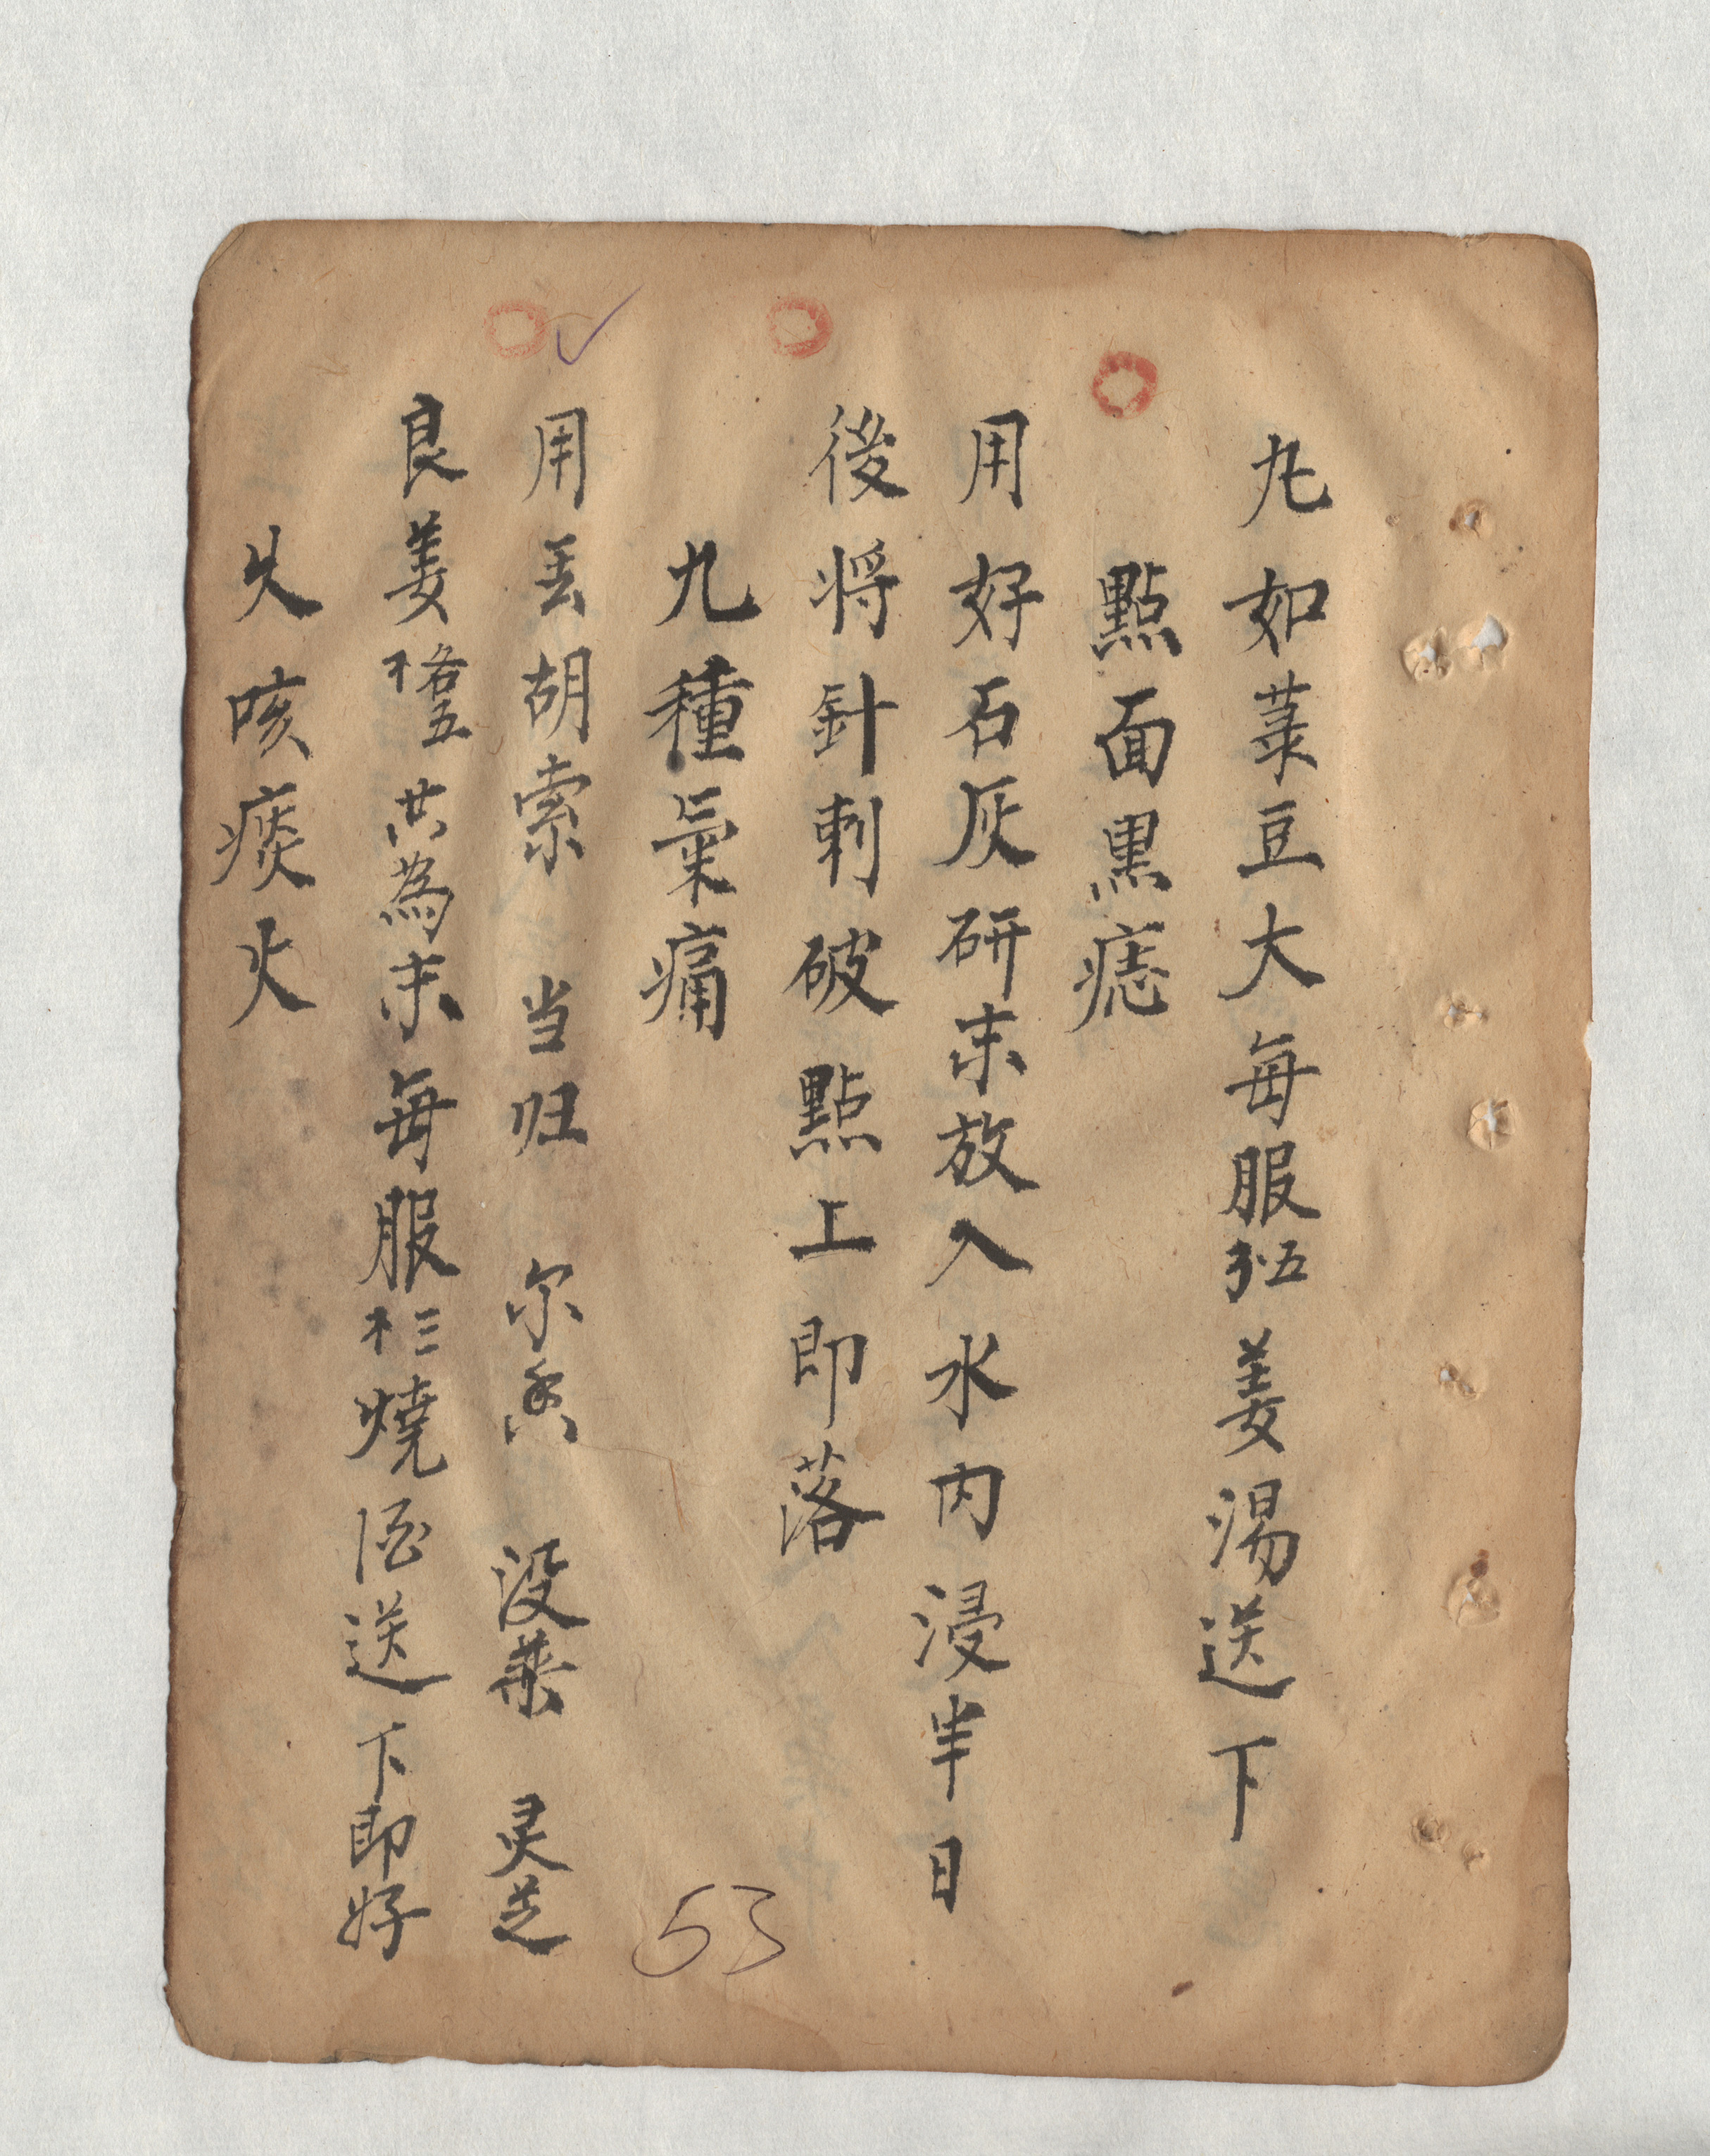 丸如菉豆大每服五姜湯送下
點面黑痣
用好石灰研末放入水內浸半日
後将針刺破點上即落
九種氣痛
用玄胡索 当归 尔香 没藥 灵芝
良姜各五共為末每服三燒酒送下即好
久咳痰火
53